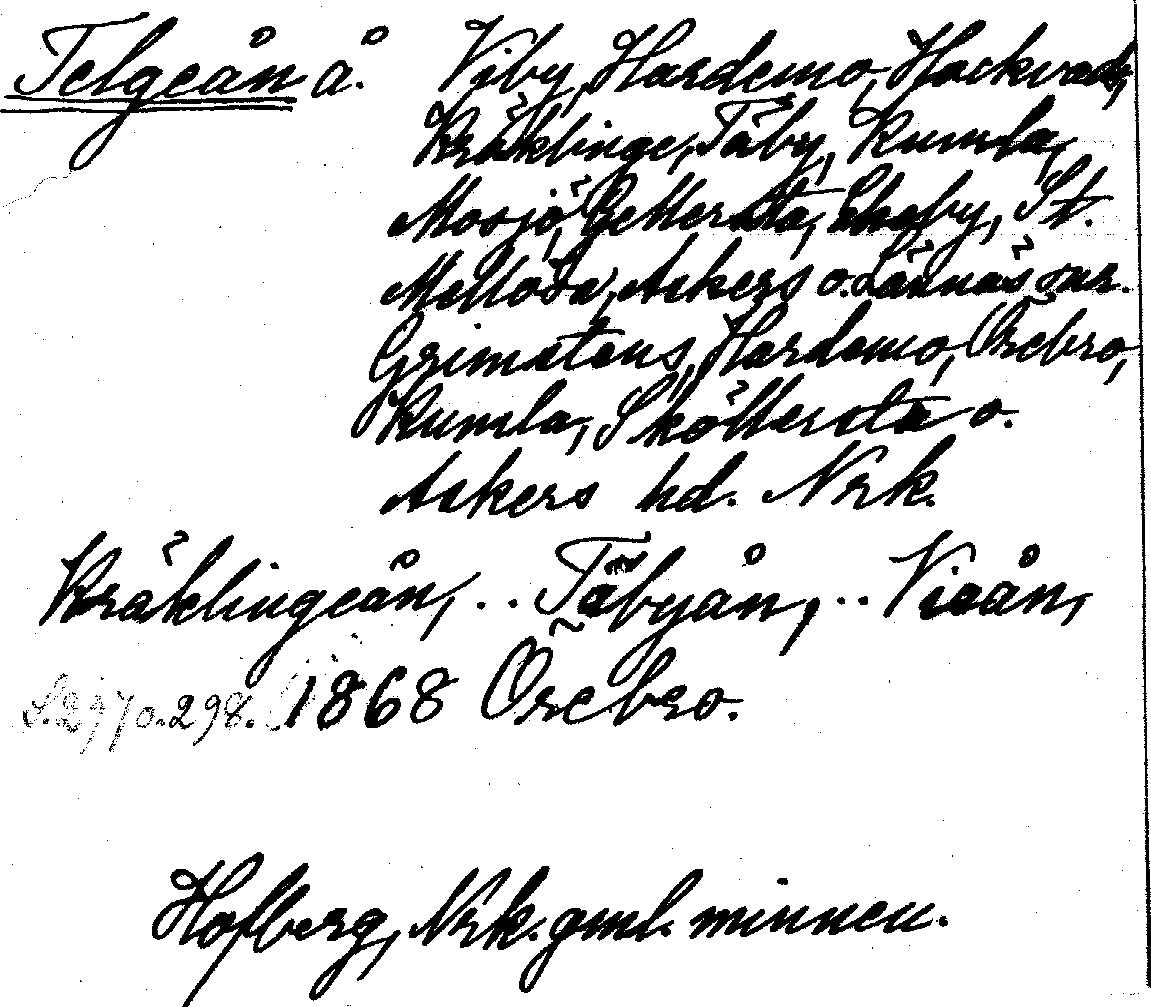 Telgeån å. Viby, Hardemo, Hackvads,
Kräklinge, Täby, Kumla,
Mosjö, Gellersta, Ekeby, St.
Mellösa, Askers o. Lännäs snr.
Grimstens, Hardemo, Örebro,
Kumla, Sköllersta o.
Askers hd. Nrk.
Kräklingeån, .. Täbyån, .. Vieån,
S. 297 o. 298. 1868 Örebro.
Hofberg, Nrk. gml. minnen.